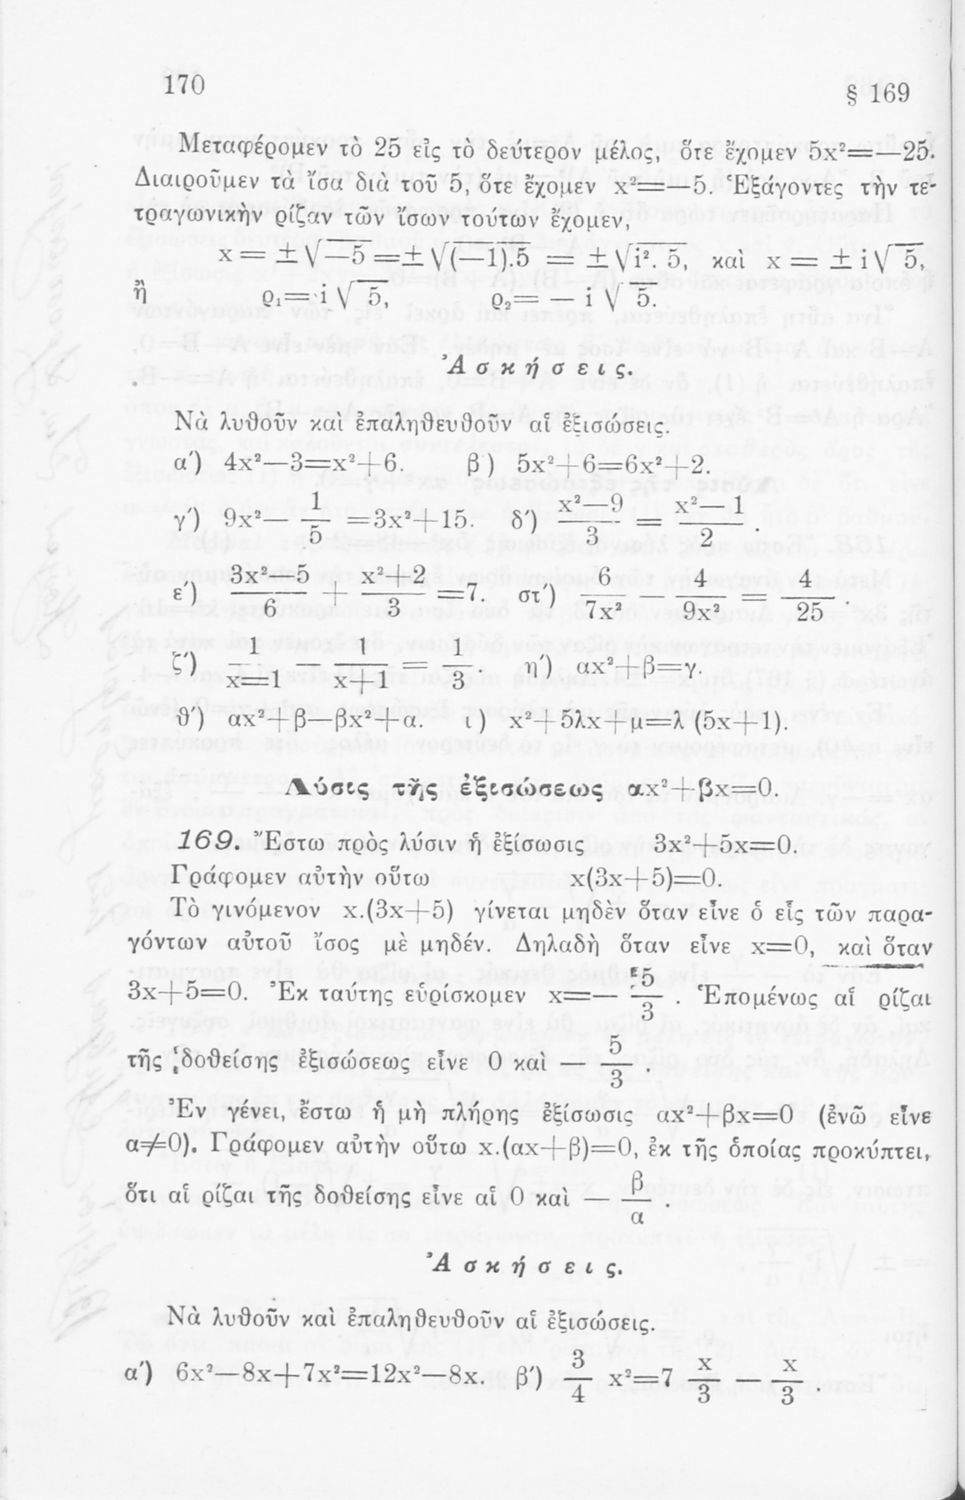 170
§ 169
Μεταφέρομεν τὸ 25 εἰς τὸ δεύτερον μέλος, ὅτε ἔχομεν 5x²=—25.
Διαιροῦμεν τὰ ἴσα διὰ τοῦ 5, ὅτε ἔχομεν x²=—5. Ἐξάγοντες τὴν τε-
τραγωνικὴν ρίζαν τῶν ἴσων τούτων ἔχομεν,
x = ± √—5 = ± √(—1).5 = ± √i². 5, καὶ x = ± i √5,
ἢ ρ₁= i √5, ρ₂= — i √5.
Ἀσκήσεις.
Νὰ λυθοῦν καὶ ἐπαληθευθοῦν αἱ ἐξισώσεις.
α') 4x²—3=x²+6. β') 5x²+6=6x²+2.
γ') 9x²— 1/5 =3x²+15. δ') (x²—9)/3 = (x²—1)/2
ε') (3x²—5)/6 + (x²+2)/3 =7. στ') 6/7x² — 4/9x² = 4/25.
ζ') 1/(x—1) — 1/(x+1) = 1/3. η') αx²+β=γ.
θ') αx²+β—βx²+α. ι) x²+5λx+μ=λ (5x+1).
Λύσις τῆς ἐξισώσεως αx²+βx=0.
169. Ἔστω πρὸς λύσιν ἡ ἐξίσωσις 3x²+5x=0.
Γράφομεν αὐτὴν οὕτω x(3x+5)=0.
Τὸ γινόμενον x.(3x+5) γίνεται μηδὲν ὅταν εἶνε ὁ εἷς τῶν παρα-
γόντων αὐτοῦ ἴσος μὲ μηδέν. Δηλαδὴ ὅταν εἶνε x=0, καὶ ὅταν
3x+5=0. Ἐκ ταύτης εὑρίσκομεν x=— 5/3. Ἑπομένως αἱ ρίζαι
τῆς δοθείσης ἐξισώσεως εἶνε 0 καὶ — 5/3.
Ἐν γένει, ἔστω ἡ μὴ πλήρης ἐξίσωσις αx²+βx=0 (ἐνῶ εἶνε
α≠0). Γράφομεν αὐτὴν οὕτω x.(αx+β)=0, ἐκ τῆς ὁποίας προκύπτει,
ὅτι αἱ ρίζαι τῆς δοθείσης εἶνε αἱ 0 καὶ — β/α.
Ἀσκήσεις.
Νὰ λυθοῦν καὶ ἐπαληθευθοῦν αἱ ἐξισώσεις.
α') 6x²—8x+7x²=12x²—8x. β') 3/4 x²=7 x/3 — x/3.